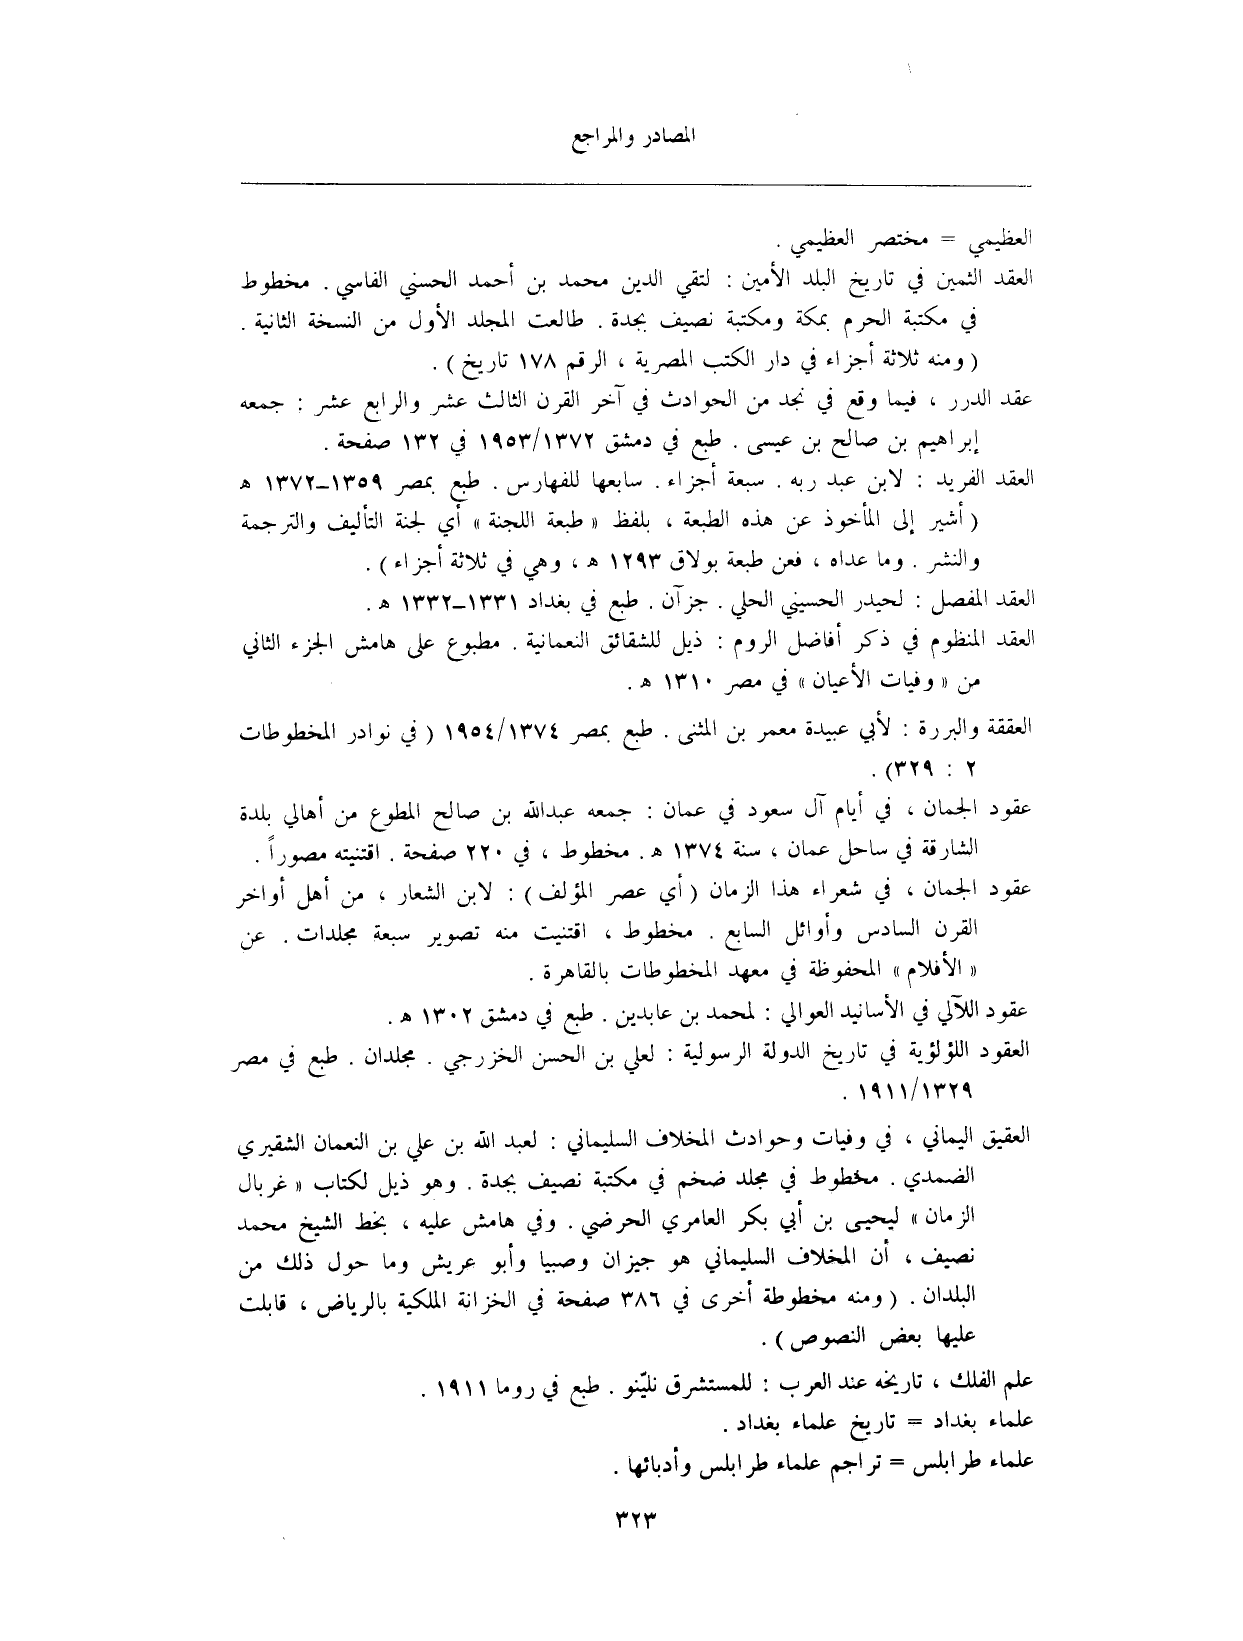 المصادر والمراجع
العظيمي = مختصر العظيمي .
العقد الثمين في تاريخ البلد الأمين : لتقي الدين محمد بن أحمد الحسني الفاسي . مخطوط
في مكتبة الحرم بمكة ومكتبة نصيف بجدة . طالعت المجلد الأول من النسخة الثانية .
( ومنه ثلاثة أجزاء في دار الكتب المصرية ، الرقم ١٧٨ تاريخ ) .
عقد الدرر ، فيما وقع في نجد من الحوادث في آخر القرن الثالث عشر والرابع عشر : جمعه
إبراهيم بن صالح بن عيسى . طبع في دمشق ١٩٥٣/١٣٧٢ في ١٣٢ صفحة .
العقد الفريد : لابن عبد ربه . سبعة أجزاء . سابعها للفهارس . طبع بمصر ١٣٥٩–١٣٧٢ ﻫ
( أشير إلى المأخوذ عن هذه الطبعة ، بلفظ « طبعة اللجنة » أي لجنة التأليف والترجمة
والنشر . وما عداه ، فعن طبعة بولاق ١٢٩٣ ﻫ ، وهي في ثلاثة أجزاء ) .
العقد المفصل : لحيدر الحسيني الحلي . جزآن . طبع في بغداد ١٣٣١–١٣٣٢ ﻫ .
العقد المنظوم في ذكر أفاضل الروم : ذيل للشقائق النعمانية . مطبوع على هامش الجزء الثاني
من « وفيات الأعيان » في مصر ١٣١٠ ﻫ .
العققة والبررة : لأبي عبيدة معمر بن المثنى . طبع بمصر ١٩٥٤/١٣٧٤ ( في نوادر المخطوطات
٢ : ٣٢٩) .
عقود الجمان ، في أيام آل سعود في عمان : جمعه عبدالله بن صالح المطوع من أهالي بلدة
الشارقة في ساحل عمان ، سنة ١٣٧٤ ﻫ . مخطوط ، في ٢٢٠ صفحة . اقتنيته مصوراً .
عقود الجمان ، في شعراء هذا الزمان ( أي عصر المؤلف ) : لابن الشعار ، من أهل أواخر
القرن السادس وأوائل السابع . مخطوط ، اقتنيت منه تصوير سبعة مجلدات . عن
« الأفلام » المحفوظة في معهد المخطوطات بالقاهرة .
عقود اللآلي في الأسانيد العوالي : لمحمد بن عابدين . طبع في دمشق ١٣٠٢ ﻫ .
العقود اللؤلؤية في تاريخ الدولة الرسولية : لعلي بن الحسن الخزرجي . مجلدان . طبع في مصر
١٩١١/١٣٢٩ .
العقيق اليماني ، في وفيات وحوادث المخلاف السليماني : لعبد الله بن علي بن النعمان الشقيري
الضمدي . مخطوط في مجلد ضخم في مكتبة نصيف بجدة . وهو ذيل لكتاب « غربال
الزمان » ليحيى بن أبي بكر العامري الحرضي . وفي هامش عليه ، بخط الشيخ محمد
نصيف ، أن المخلاف السليماني هو جيزان وصبيا وأبو عريش وما حول ذلك من
البلدان . ( ومنه مخطوطة أخرى في ٣٨٦ صفحة في الخزانة الملكية بالرياض ، قابلت
عليها بعض النصوص ) .
علم الفلك ، تاريخه عند العرب : للمستشرق نلّينو . طبع في روما ١٩١١ .
علماء بغداد = تاريخ علماء بغداد .
علماء طرابلس = تراجم علماء طرابلس وأدبائها .
٣٢٣